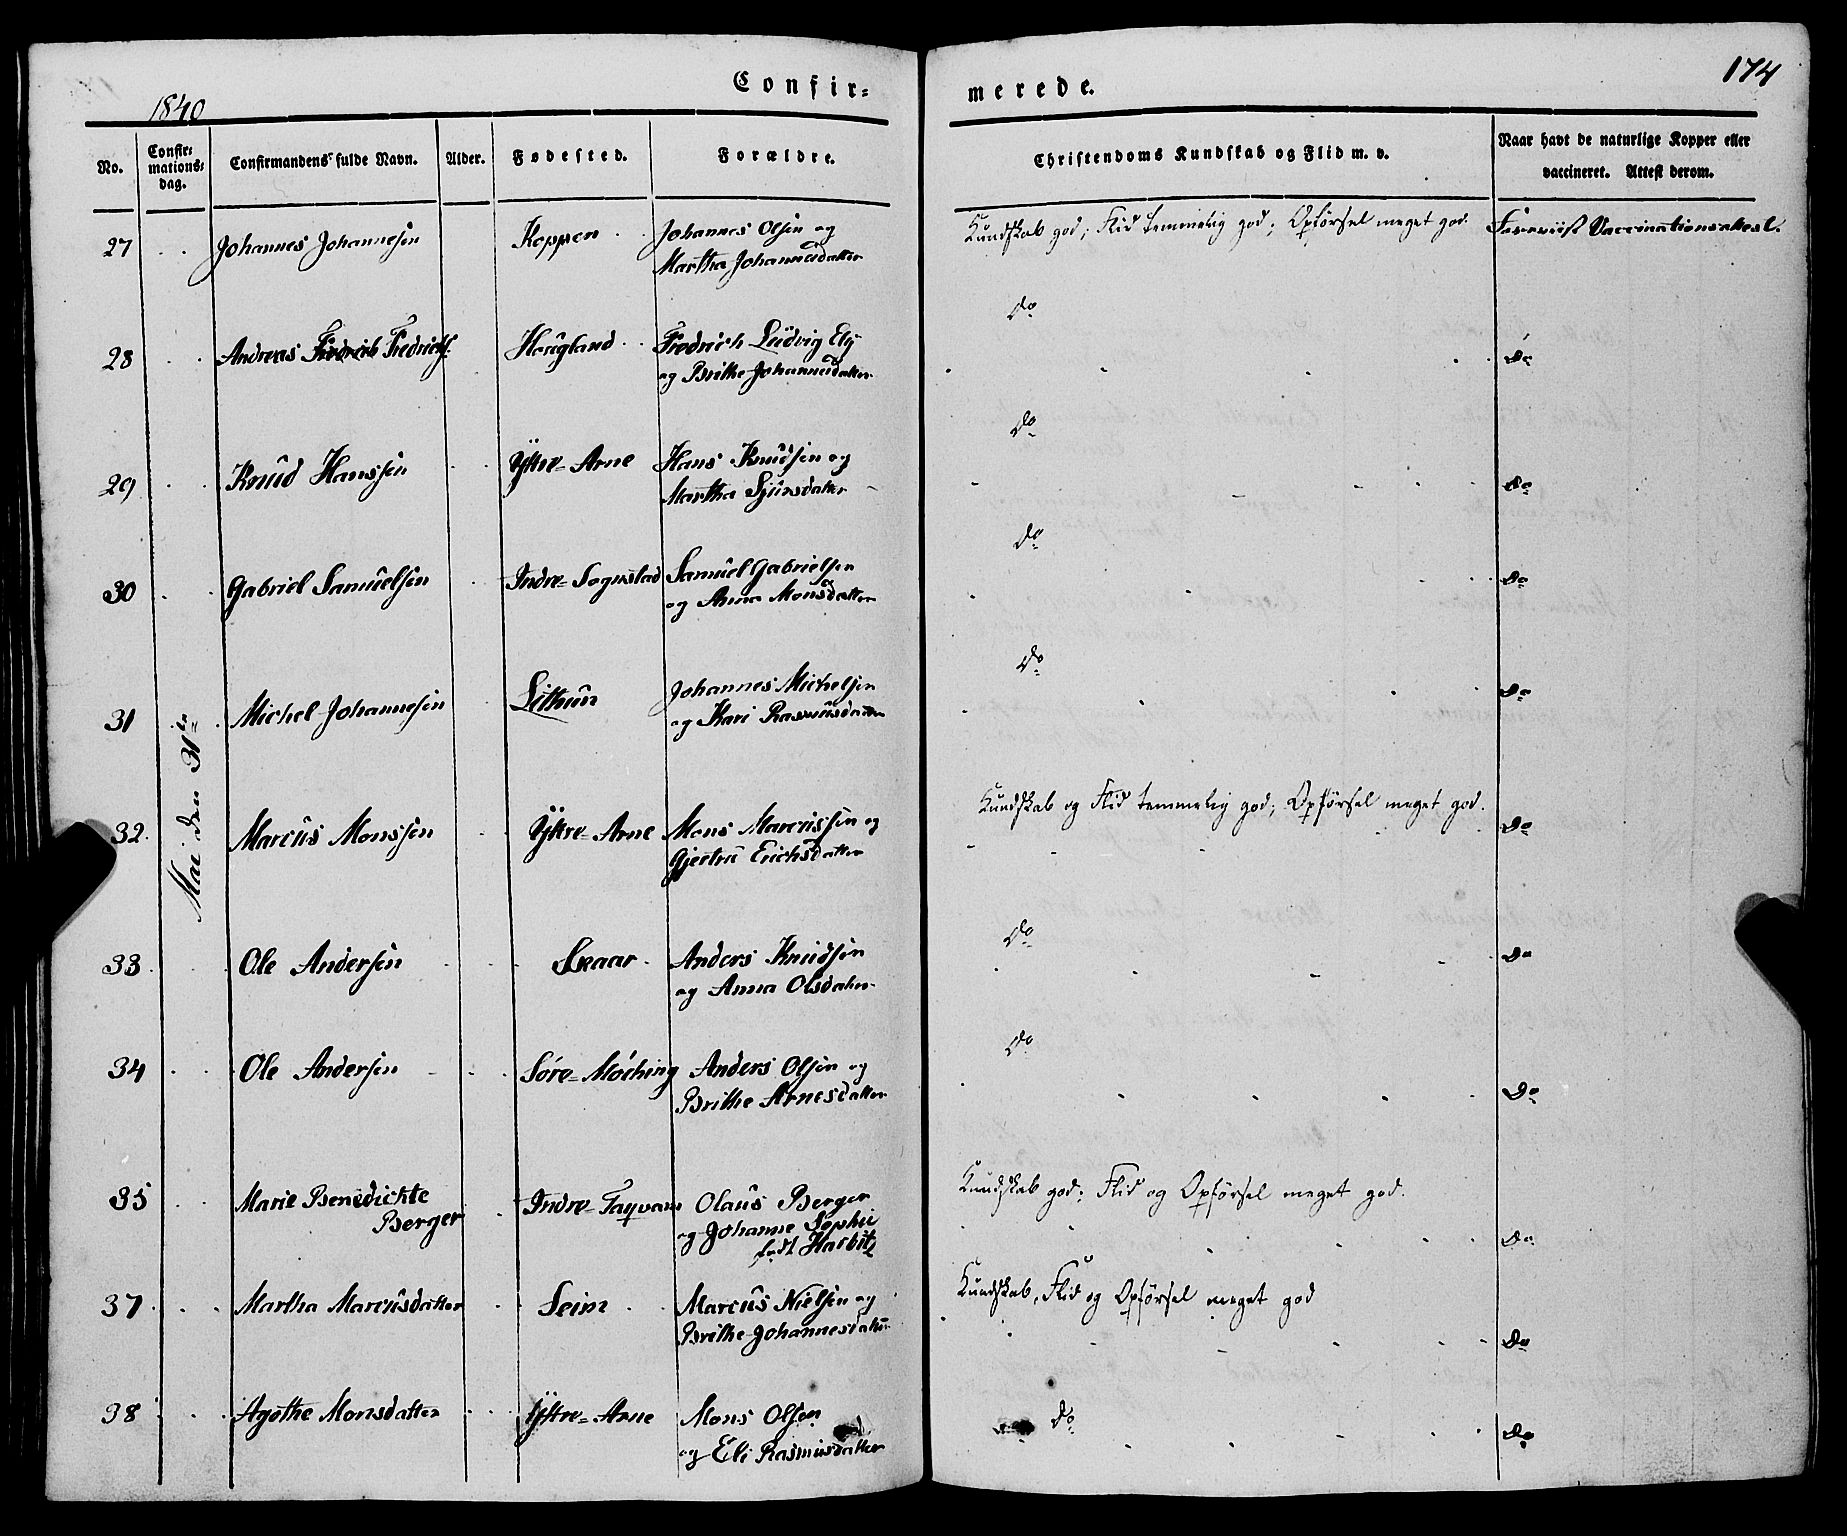 174
Confir= merede.
1840
No.
Confir=
mations=
dag.
Confirmandens fulde Navn.
Alder.
Fødested.
Forældre.
Christendoms Kundskab og Flid m. v.
Naar havt de naturlige Kopper eller
vaccineret. Attest derom.
Mai den 31te
27 Johannes Johannesen Koppen Johannes Olsen og
Martha Johannesdatter
Kundskab god; Flid temmelig god; Opførsel meget god. Foreviist Vaccinationsattest.
28 Andreas Fredrich Fredrichs. Hougland Fredrich Ludvig Ely
og Brithe Johannesdatter
Do Do
29 Knud Hanssen Yttre-Arne Hans Knudsen og
Martha Sjursdatter
Do Do
30 Gabriel Samuelsen Indre-Sognstad Samuel Gabrielsen
og Anna Monsdatter
Do Do
31 Michel Johannesen Lithun Johannes Michelsen
og Kari Rasmusdatter
Do Do
32. Marcus Monssen Yttre-Arne Mons Marcussen og
Gjertru Erichsdatter
Kundskab og Flid temmelig god; Opførsel meget god. Do
33 Ole Andersen Skaar Anders Knudsen
og Anna Olsdatter
Do Do
34 Ole Andersen Søre-Møching Anders Olsen og
Brithe Arnesdatter
Do Do
35 Marie Benedichte
Berger
Indre- Olaus Berger
og Johanne Sophie
født Harbitz
Kundskab god; Flid og Opførsel meget god. Do
37 Martha Marcusdatter Seim Marcus Nielsen og
Brithe Johannesdatter
Kundskab, Flid og Opførsel meget god Do
38 Agothe Monsdatter Yttre-Arne Mons Olsen
og Eli Rasmusdatter
Do Do